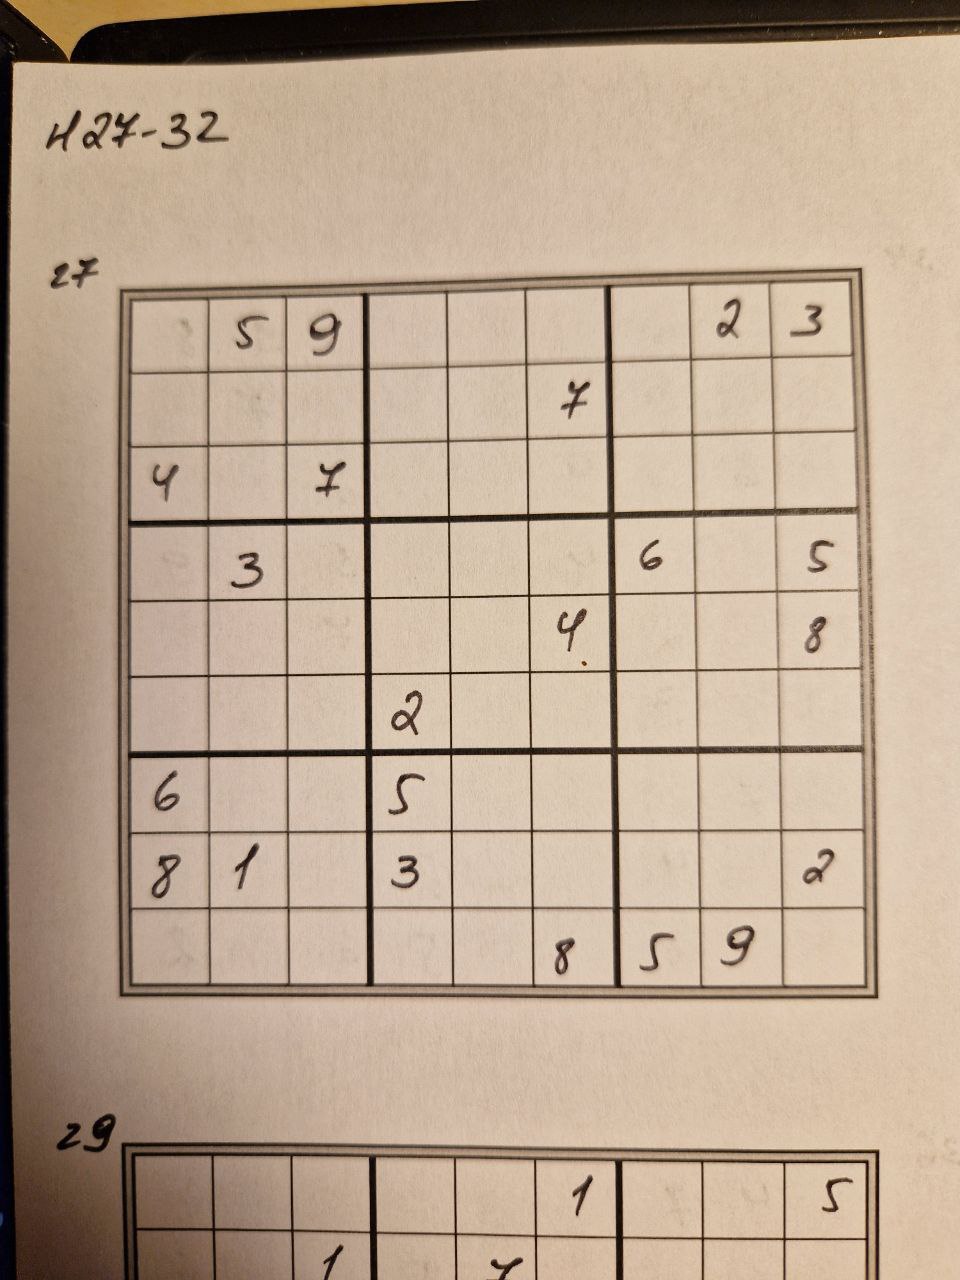 И27-32
27
5 9 2 3
7
4 7
3 6 5
4 8
2
6 5
8 1 3 2
8 5 9
29
1 5
1 7